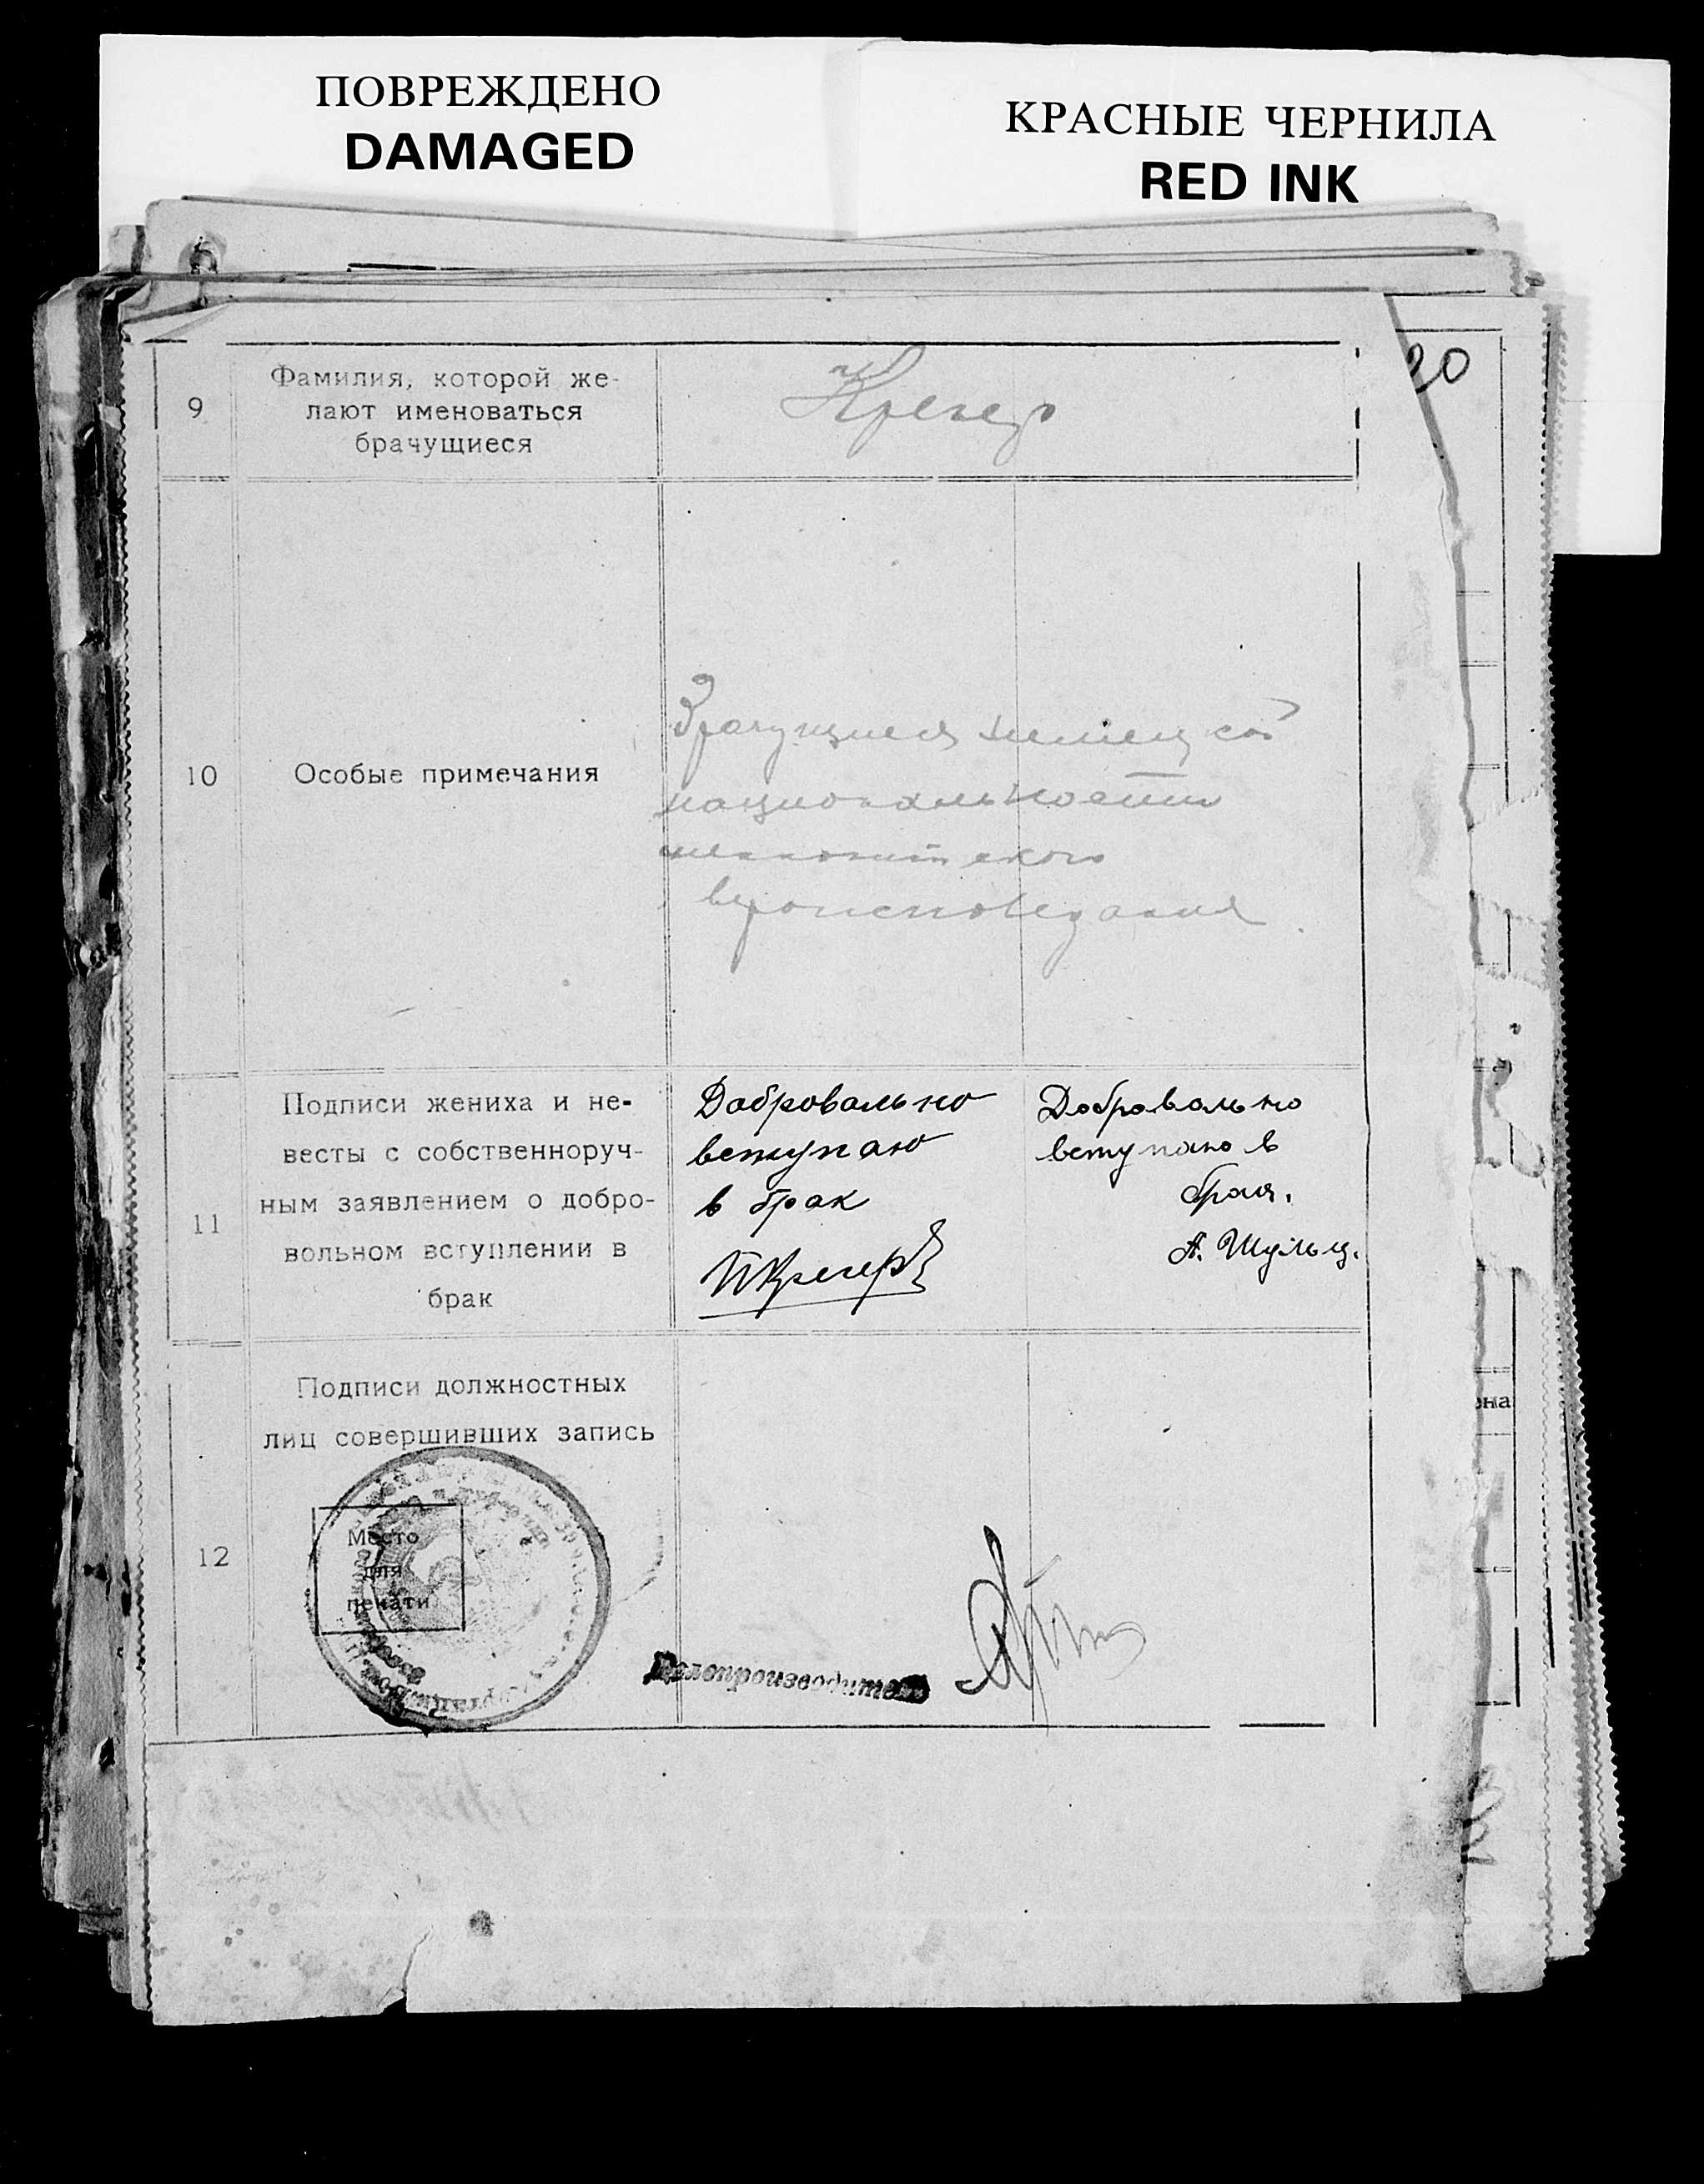 ПОВРЕЖДЕНО
DAMAGED
КРАСНЫЕ ЧЕРНИЛА
RED INK
20
9
Фамилия, которой же-
лают именоваться
брачущиеся
Крегер
10
Особые примечания
Брачущиеся немецкой
национальности
менонитского
вероисповедания.
11
Подписи жениха и не-
весты с собственноруч-
ным заявлением о добро-
вольном вступлении в
брак
Добровольно
вступаю
в брак
ПКрегер
Добровольно
вступаю в
брак.
А. Шульц.
12
Подписи должностных
лиц совершивших запись
Место
для
печати
Делопроизводитель
на